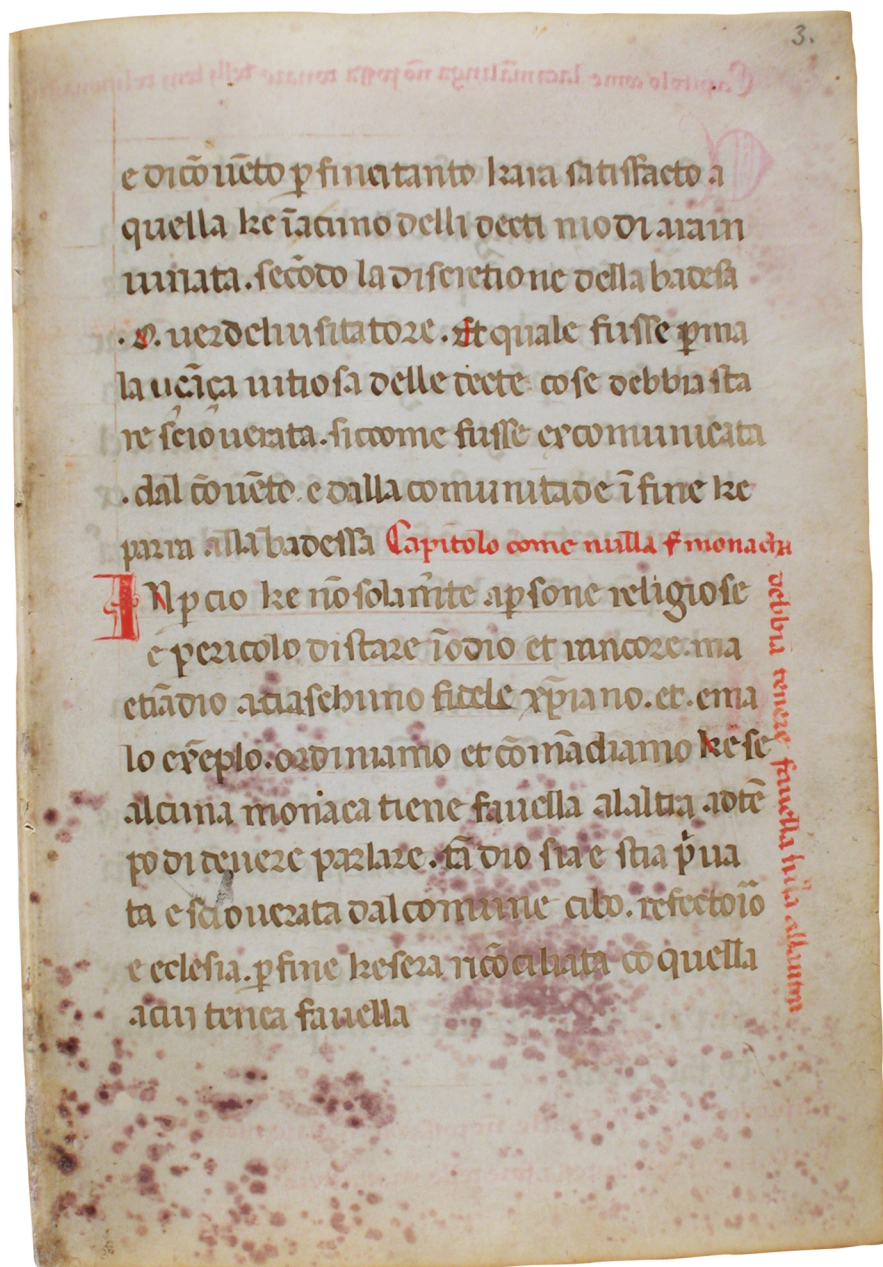 3.
e dicōuēto p̱ fine a tanto kaia satisffacto a
quella ke īalcuno delli decti modi aiain
iuriata. secōdo la discretione della badesa
.O. uer del uisitatore. Et quale fusse p̱ ma
la ucāça uitiosa delle decte cose debbia sta
re sc̄iouerata. siccome fusse excomunicata
. dal cōuēto e dalla comunitade ī fine ke
parra alla badessa Capitolo come nulla monacha
debbia tenere fauella alla altra
IN p̱cio ke nō solam̄te a p̱sone religiose
e p̱ericolo di stare ī odio et rancore. ma
etiādio a ciaschuno fidele xp̄iano. et. e ma
lo exēplo. ordiniamo et cōmādiamo ke se
alcuna monaca tiene fauella alaltra adtē
po di tenere parlare. tā dio sia e stia p̄ua
ta e sciouerata dal comune cibo. refectoīo
e eclesia. p̱ fine ke sera ricōciliata cō quella
a cui tenea fauella